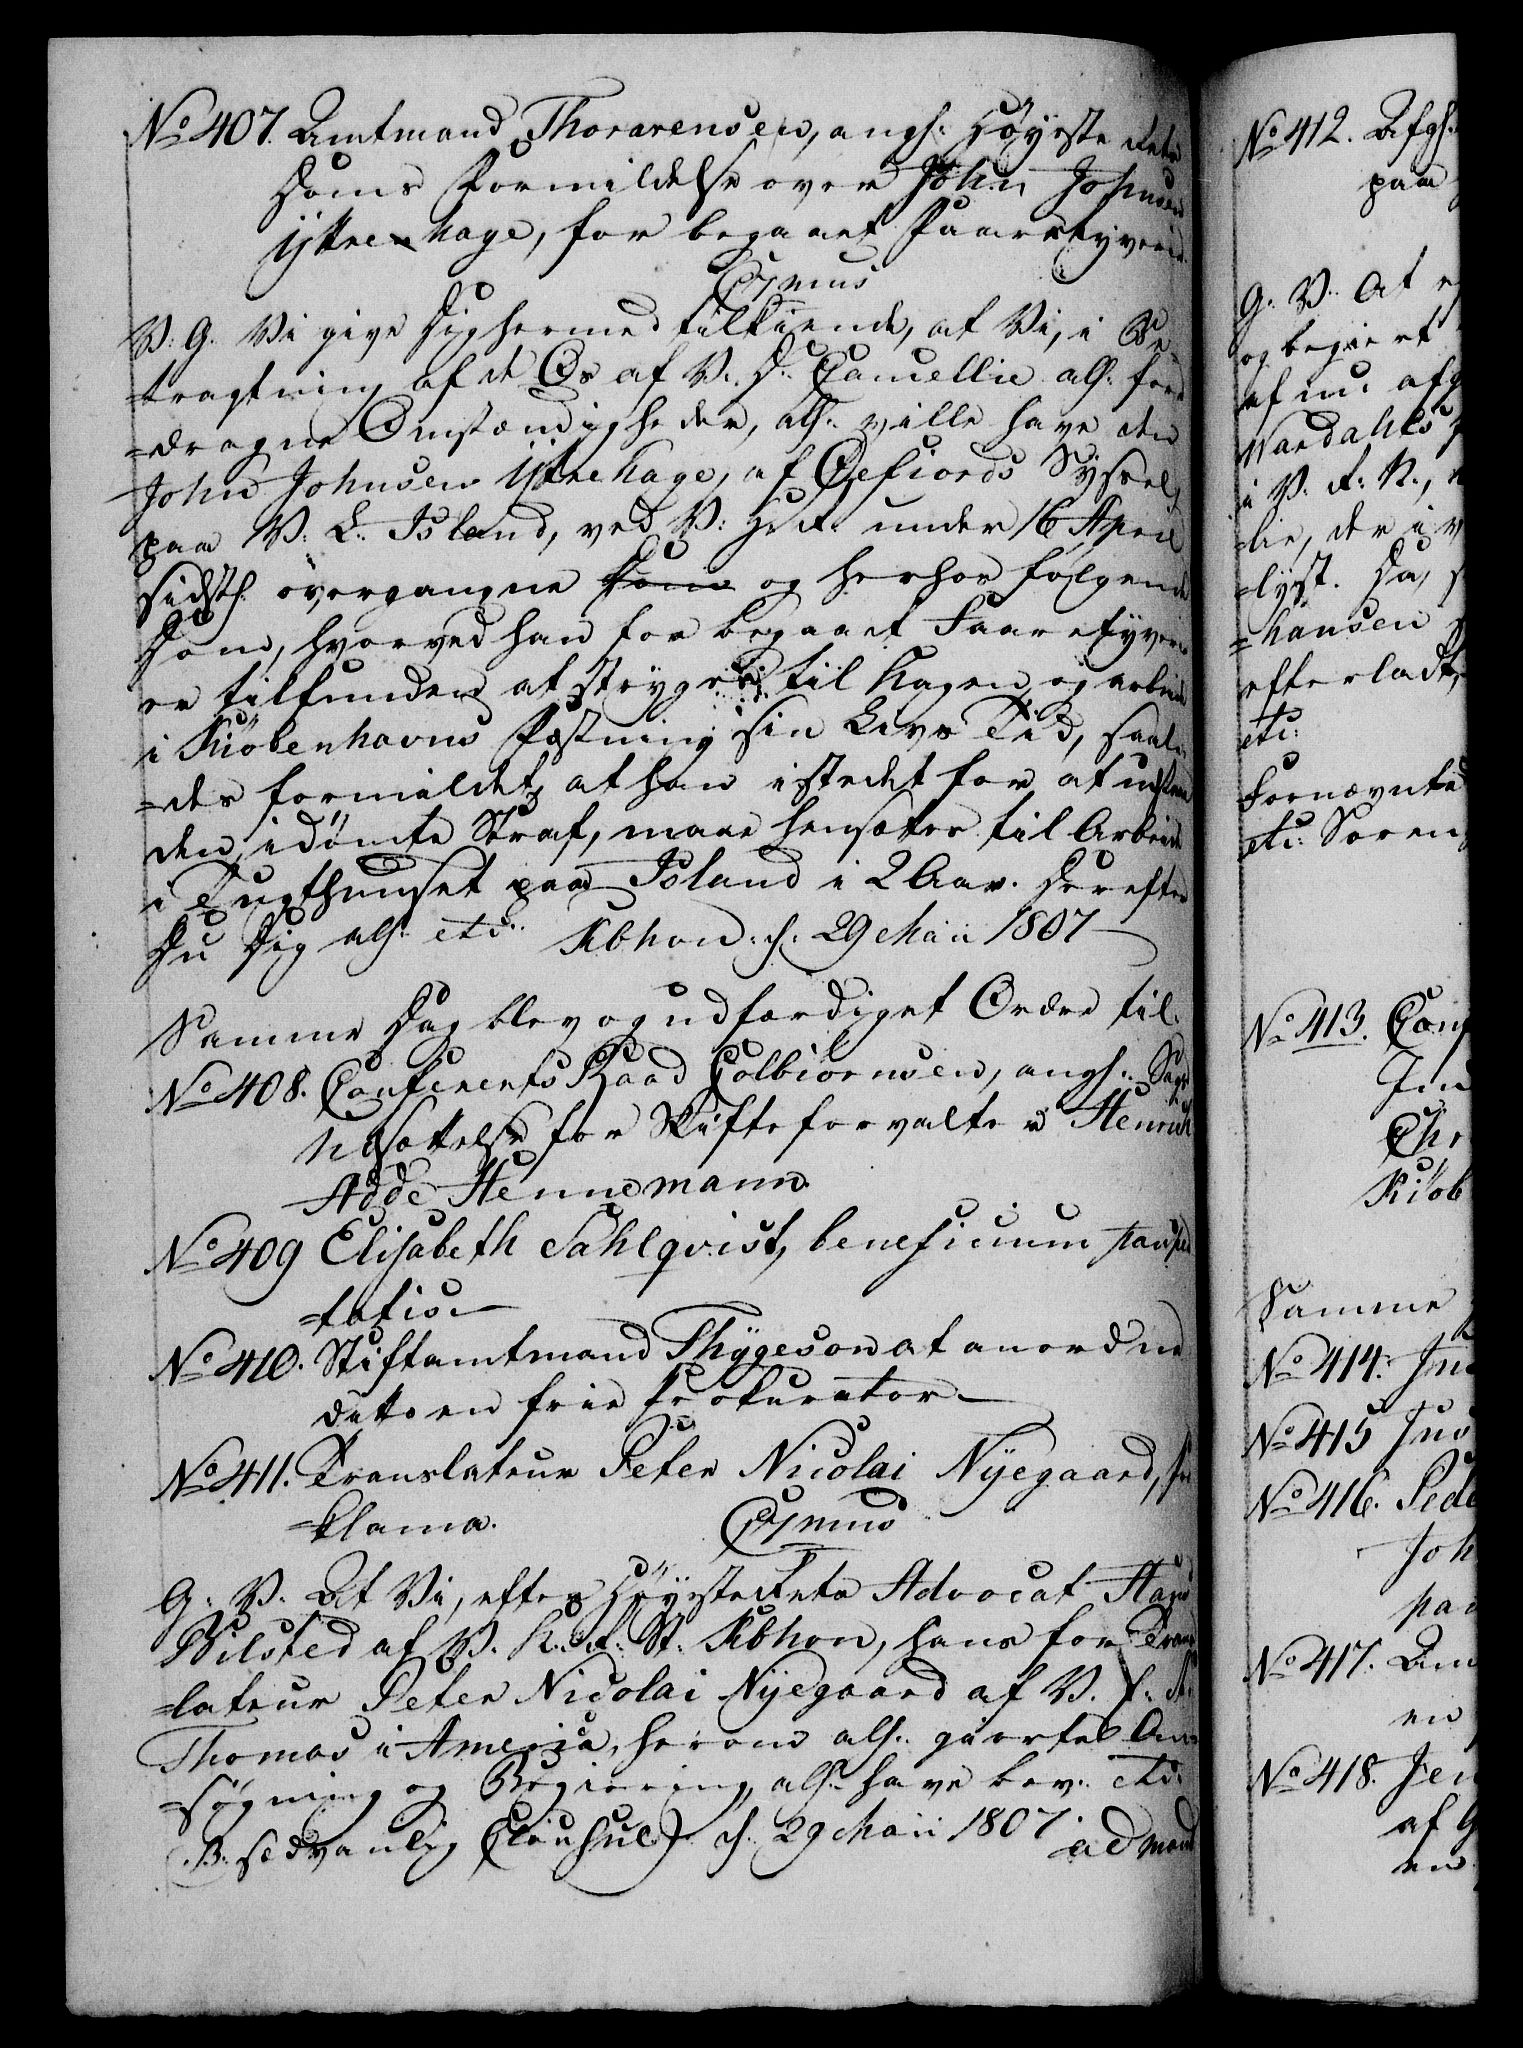 No 407. Amtmand Thorarensen, angh: Høyeste Rets
Doms Formildelse over John Johnsen
Ijttrehage, for begaaet Faaretyverie
C 7 mus
V: G. Vi give Dig hermed tilkiende, at Vi, i Be-
=tragtning af de Os af V: D: Cancellie alh: fore
=dragne Omstændigheder, alh: ville have den
John Johnsen Ijttrehage, af Oefiords Syssel,
paa V: L: Island, ved V: H: R: under 16 April
sidsth: overgangne Dom og herhos følgende
Dom, hvorved han for begaaet Faaretyverie
er tilfunden at stryges til Kagen og arbeide
i Kiöbenhavns Fæstning sin Livs Tid, saale-
=des formildet, at han istedet for at udstaae
den idömte Straf, maae hensættes til Arbeide
i Tugthuuset paa Island i 2 Aar. Derefter
Du Dig alh: etc: Kbhvn: d: 29 Maii 1807
Samme Dag blev og udfærdiget Ordre til
No 408. Conferents Raad Colbiörnsen, angh: Sags
Nedsættelse for Skifteforvalter Henrich
Adde Hennemann.
No 409 Elisabeth Sahlqvist, beneficium pauper
=tatis.
No 410. Stiftamtmand Thygeson at anordne
ditto en frie Prokurator
No 411. Translateur Peter Nicolai Nyegaard, Pro
=klama.
C 7 mus
G: V. At Vi, efter Høyesterets Advocat Hans
Wilsted af V. K: R: St: Kbhvn, hans for Trans
=lateur Peter Nicolai Nyegaard af V. E: St:
Thomas i America, herom alh: giorte An-
=søgning og Begiering, alh: have bev: etc:
(B: sædvanlig Clausul) d: 29 Maii 1807. ad mand
No 412. Afgh:
paa
G: V: At e
og begieret
af nu afg
Wardahls
i V: R: R.,
=lie, der i v
=lyst. Da, s
=hansen
efterladt,
etc:
Fornævnte
etc: Soren
No 413. Conf
Ind
Chr
Kiöb
Samme
No 414. Ju
No 415 Jus
No 416. Pede
Joh
paa
No 417. Am
en
No 418. Jen
af G
en